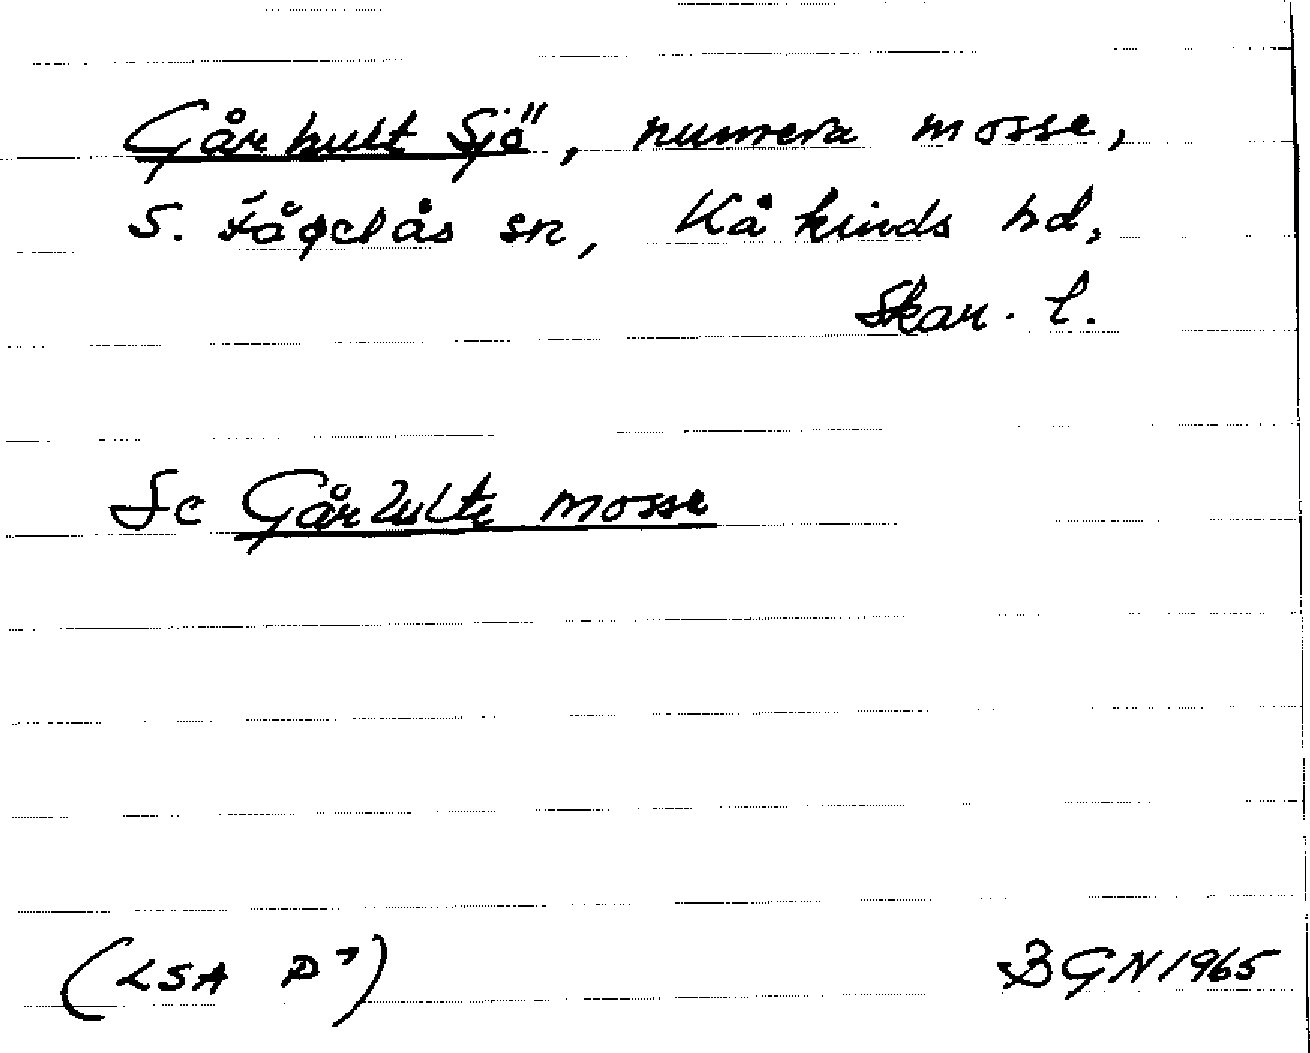 Gårhult Sjö", numera mosse,
S. Fågelås sn, Kåkinds hd,
Skar. l.
Se Gårhulte mosse
(LSA P7)
BGN 1965